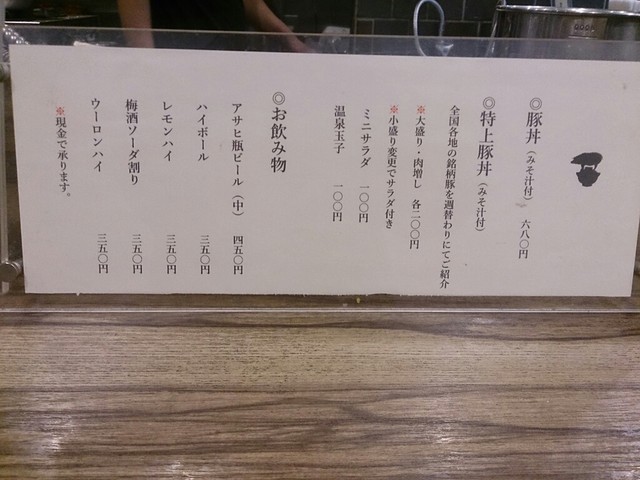 ◎豚丼（みそ汁付） 六八〇円
◎特上豚丼（みそ汁付）
全国各地の銘柄豚を週替わりにてご紹介
※大盛り・肉増し 各二〇〇円
※小盛り変更でサラダ付き
ミニサラダ 一〇〇円
温泉玉子 一〇〇円
◎お飲み物
アサヒ瓶ビール（中） 四五〇円
ハイボール 三五〇円
レモンハイ 三五〇円
梅酒ソーダ割り 三五〇円
ウーロンハイ 三五〇円
※現金で承ります。